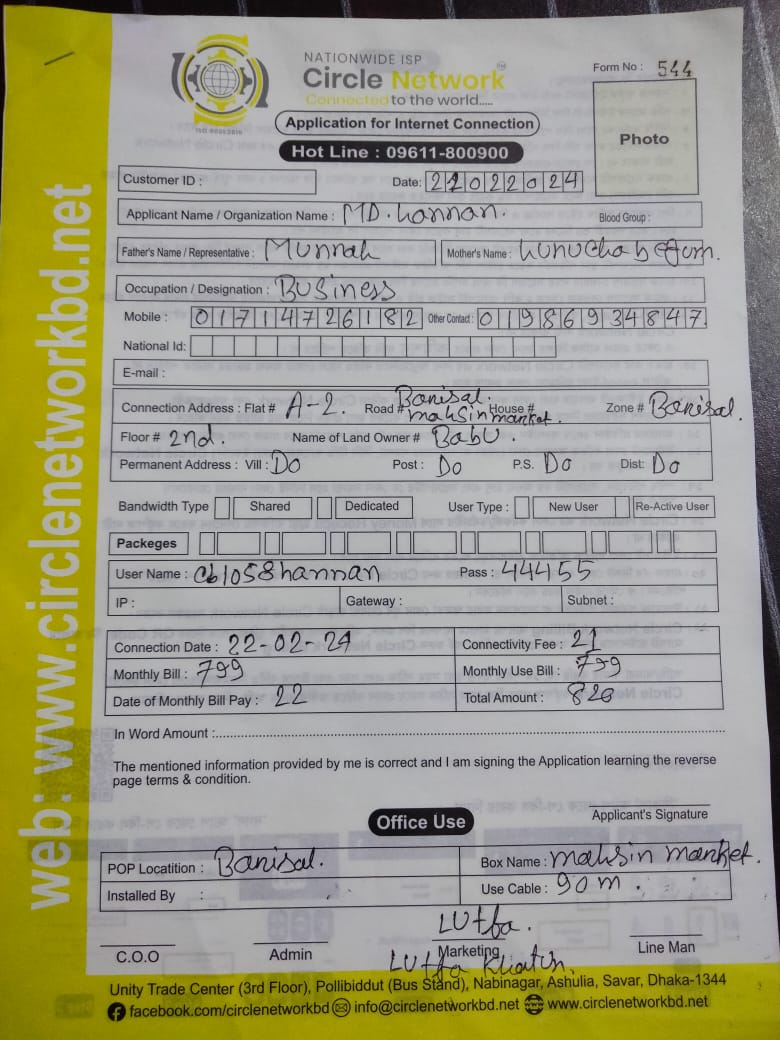 NATIONWIDE ISP
Circle Network
Connected to the world.....
ISO 9001:2015
Form No : 544
Application for Internet Connection
Photo
Hot Line : 09611-800900
Customer ID :
Date: 22022024
Applicant Name / Organization Name : MD. hannan.
Blood Group :
Father's Name / Representative : Munnah
Mother's Name : Lunucha begum.
Occupation / Designation : Business
Mobile : 01714726182 Other Contact : 01986934847
National Id:
E-mail :
Connection Address : Flat # A-2. Road # Barisal. mahsin market. House # Zone # Barisal.
Floor # 2nd. Name of Land Owner # Babu.
Permanent Address : Vill : Do Post : Do P.S. Do Dist: Do
Bandwidth Type Shared Dedicated User Type : New User Re-Active User
Packeges
User Name : cb1058hannan Pass : 44455
IP : Gateway : Subnet :
Connection Date : 22-02-24 Connectivity Fee : 21
Monthly Bill : 799 Monthly Use Bill : 799
Date of Monthly Bill Pay : 22 Total Amount : 820
In Word Amount :
The mentioned information provided by me is correct and I am signing the Application learning the reverse
page terms & condition.
Applicant's Signature
Office Use
POP Locatition : Barisal. Box Name : mahsin market.
Installed By : Use Cable : 90m.
Lutfa.
C.O.O Admin Marketing Line Man
Lutfa Khatun.
Unity Trade Center (3rd Floor), Pollibiddut (Bus Stand), Nabinagar, Ashulia, Savar, Dhaka-1344
facebook.com/circlenetworkbd info@circlenetworkbd.net www.circlenetworkbd.net
web: www.circlenetworkbd.net